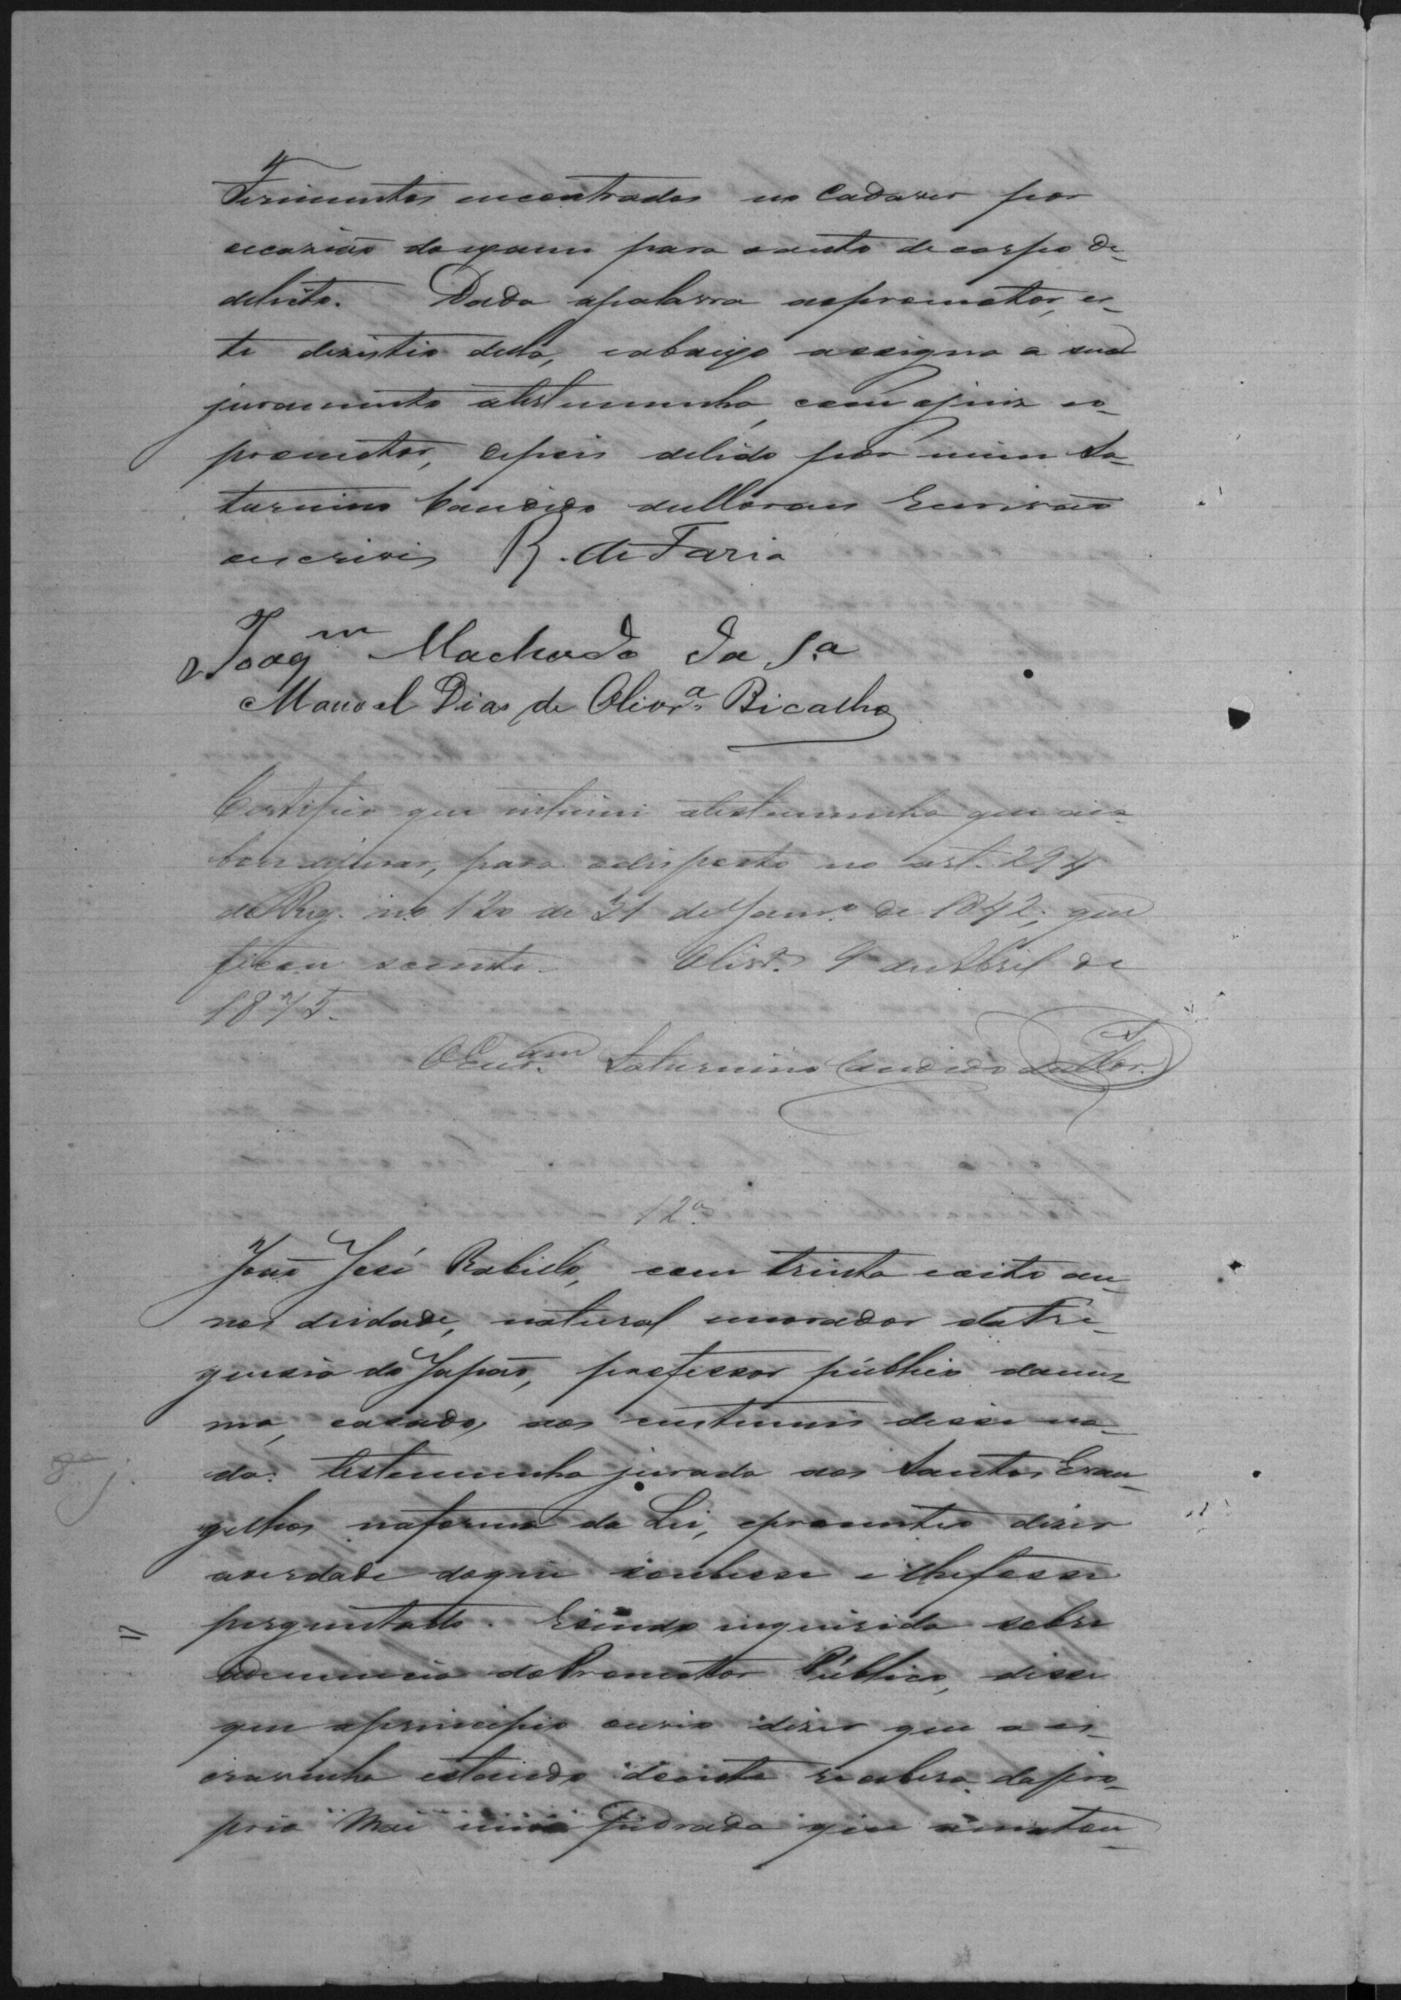 Ferimentos encontrados no Cadaver por
occazião do exame para o auto de corpo de
delicto. Dada apalavra aopromotor, es-
te dezistio della, eabaixo assigna o seu
juramento atestemunha, com ojuiz eo-
promotor, depois delido por mim Sa-
turnino Candido deMoraes Escrivão
oescrivi R. de Faria
Joaqm Machado da Sa
Manoel Dias de Olivra Bicalho
Certifico que intimei atestemunha que aca-
bou dejurar, para odisposto no art. 294
do Reg. no 120 de 31 deJanro de 1842; que
ficou sciente. Olivra 9 deAbril de
1875.
OEscram Saturnino Candido deMor.
12a
João José Rabello, com trinta eoito an-
nos deidade, natural emorador daFre-
guezia do Japão, professor público damés-
ma, cazado, aos custumes disse na-
da. testemunha jurada aos Santos Evan-
gelhos naforma da Lei, eprometteo dizer
averdade doque soubesse e lhefosse
perguntado. Esendo inquirida sobre
adenuncia doPromotor Público, disse
que aprincipio ouvio dizer que a es-
cravinha estando doente recebera dapro-
pria Mai uma Pedrada que amatou
8a j.